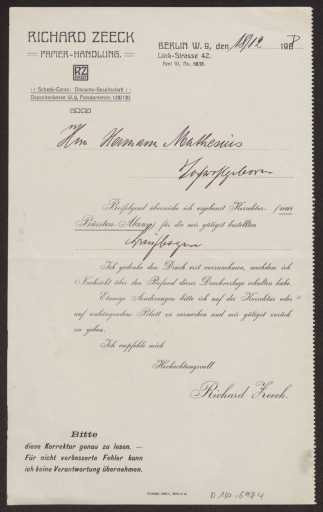 RICHARD ZEECK
PAPIER-HANDLUNG.
RZ
BERLIN W. 9, den 18/12 190
Link-Strasse 42.
Amt VI, No.
:: Scheck-Conto: Disconto-Gesellschaft ::
Depositenkasse W. 9, Potsdamerstr.
Herrn Hermann Muthesius
Hochwohlgeboren
Beifolgend überreiche ich ergebenst Korrektur (nur
Bürsten-Abzug) für die mir gütigst bestellten
Ich gedenke den Druck erst vorzunehmen, nachdem ich
Nachricht über den Befund dieser Druckvorlage erhalten habe.
Etwaige Aenderungen bitte ich auf der Korrektur oder
auf anhängendem Blatt zu vermerken und mir gütigst zurück
zu geben.
Ich empfehle mich
Hochachtungsvoll
Richard Zeeck.
Bitte
diese Korrektur genau zu lesen. —
Für nicht verbesserte Fehler kann
ich keine Verantwortung übernehmen.